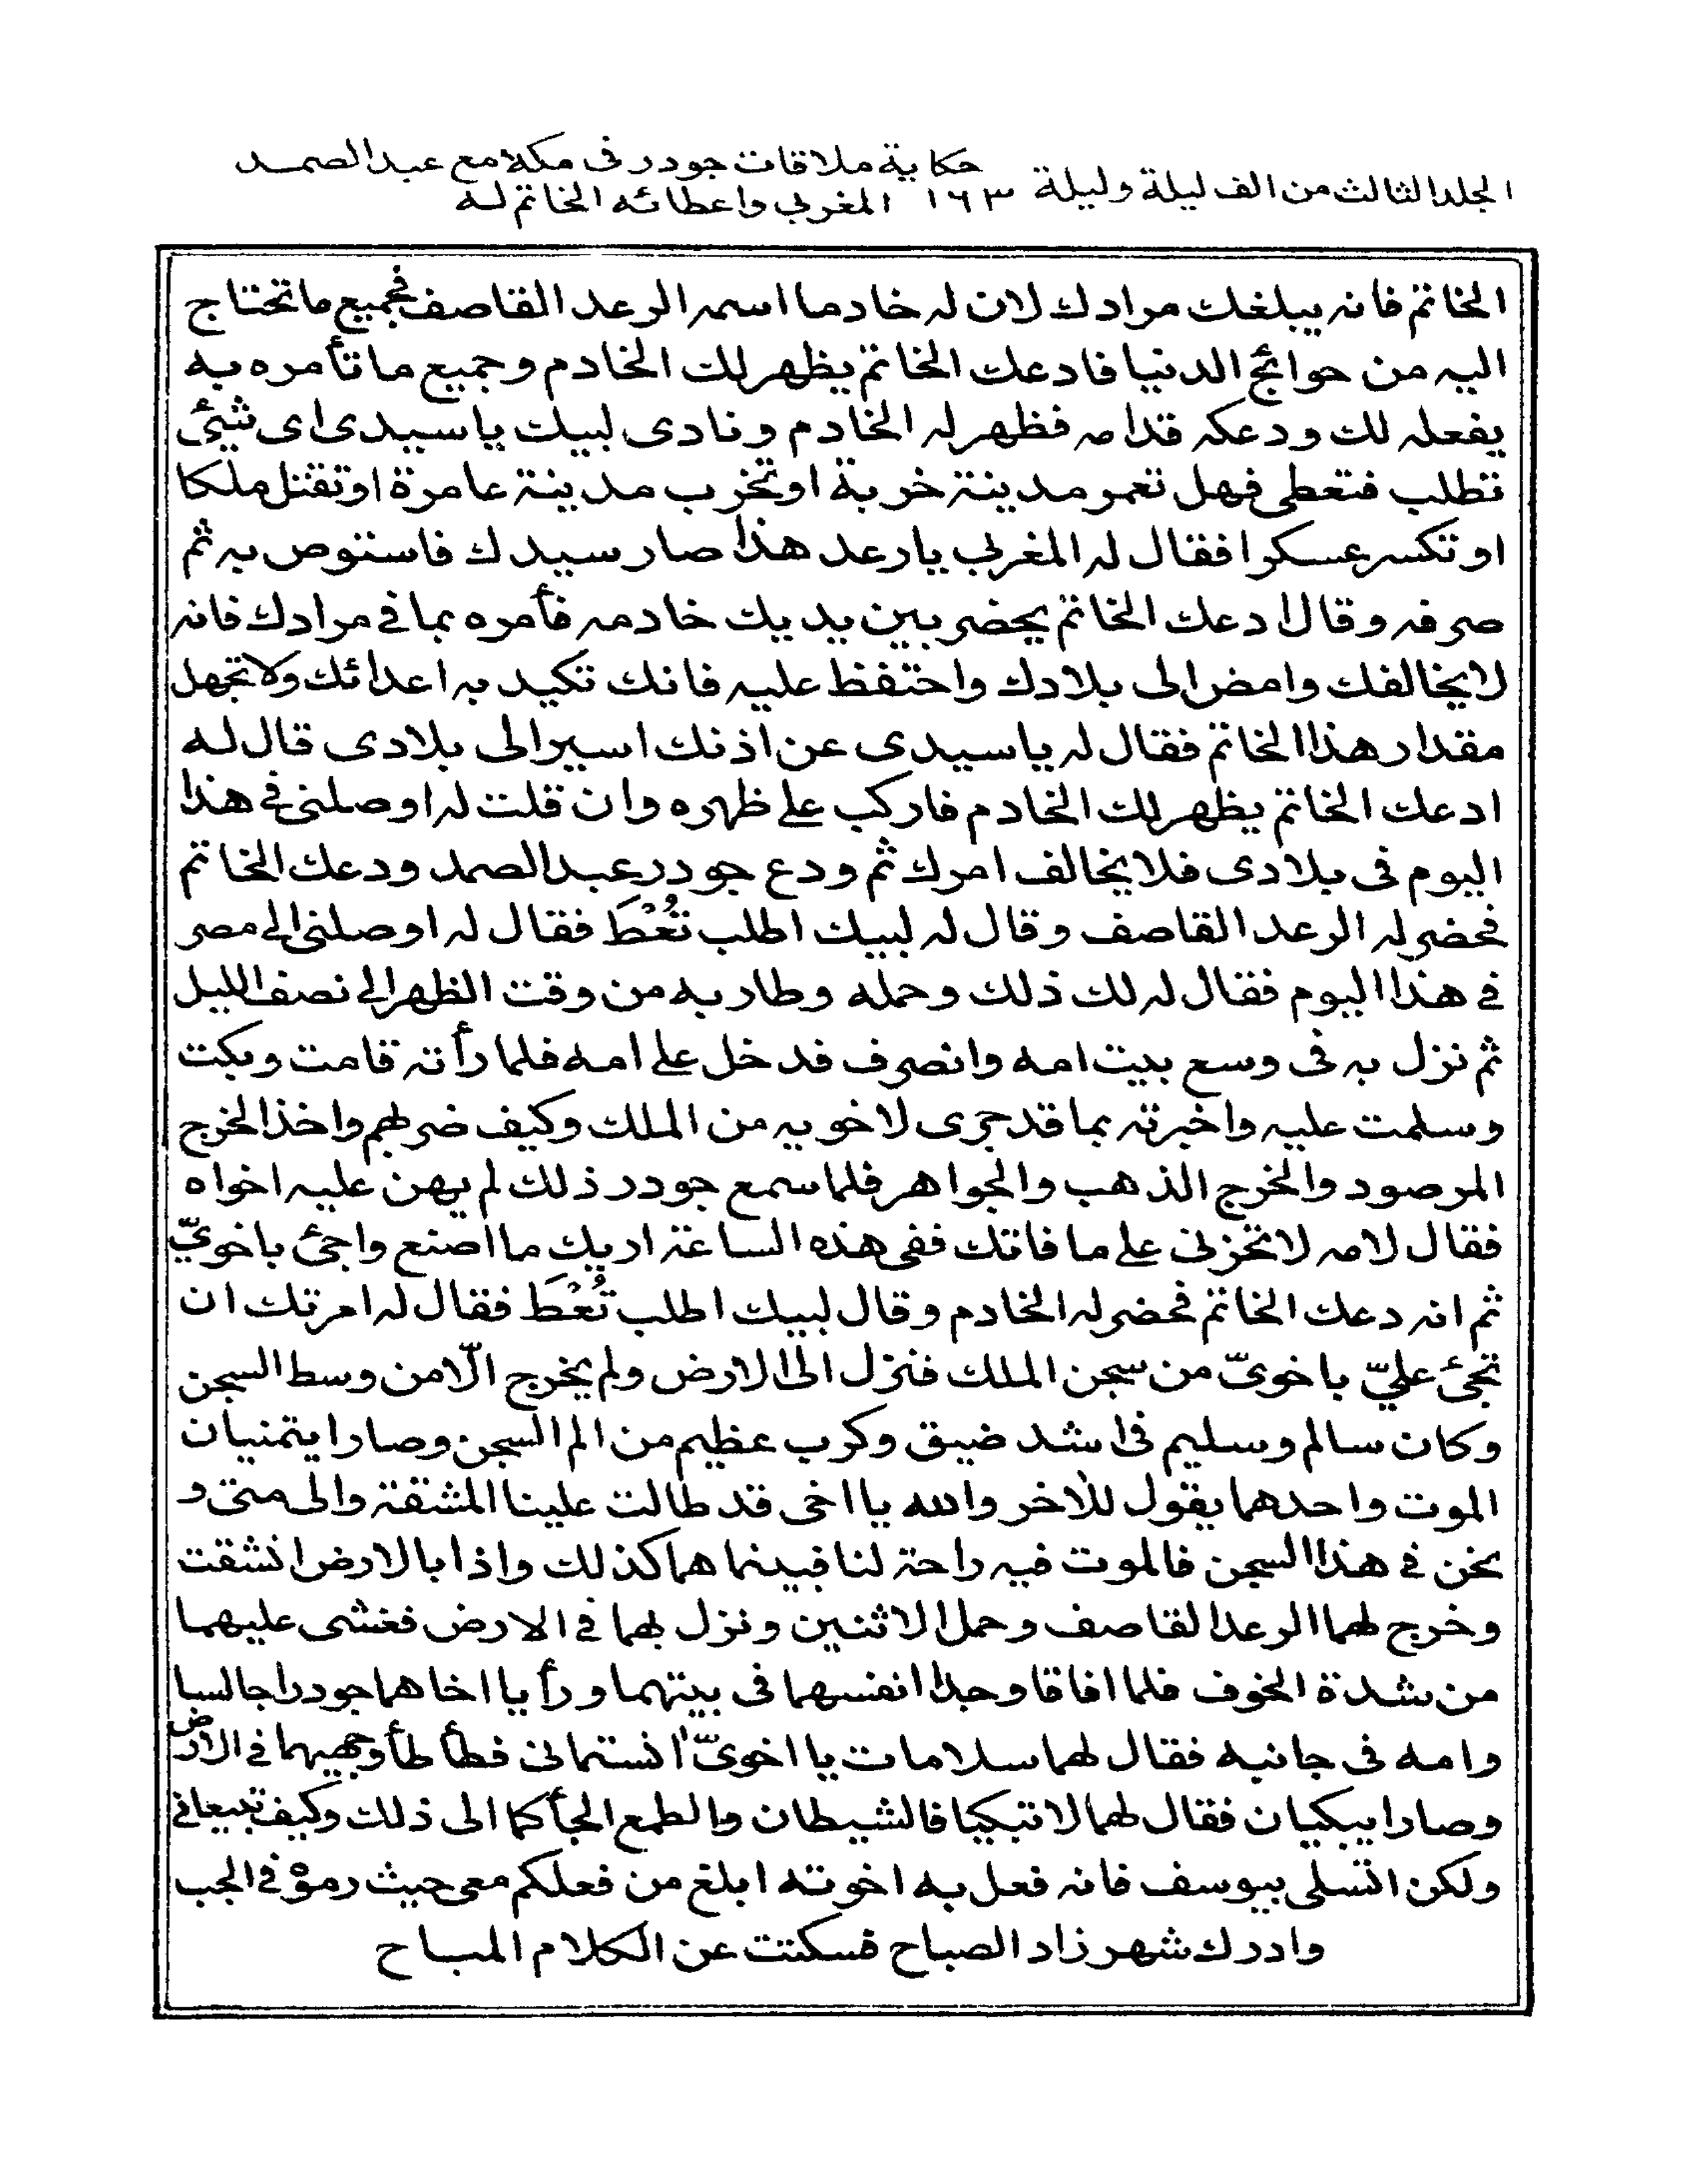 حكاية ملاقات جودر فى مكة مع عبد الصمد
الجلد الثالث من الف ليلة وليلة ١٦٣ المغربي واعطائه الخاتم له
الخاتم فانه يبلغك مرادك لان له خادما اسمه الرعد القاصف فجميع ما تحتاج
اليه من حوائج الدنيا فادعك الخاتم يظهر لك الخادم وجميع ما تأمره به
يفعله لك ودعكه قدامه فظهر له الخادم ونادى لبيك يا سيدى اى شيئ
تطلب فتعطى فهل تعمر مدينة خربة او تخرب مدينة عامرة او تقتل ملكا
او تكسر عسكرا فقال له المغربي يا رعد هذا صار سيدك فاستوص به ثم
صرفه وقال ادعك الخاتم يحضر بين يديك خادمه فأمره بما في مرادك فانه
لا يخالفك وامض الى بلادك واحتفظ عليه فانك تكيد به اعدائك ولا تجهل
مقدار هذا الخاتم فقال له يا سيدى عن اذنك اسير الى بلادى قال له
ادعك الخاتم يظهر لك الخادم فاركب على ظهره وان قلت له اوصلنى في هذا
اليوم فى بلادى فلا يخالف امرك ثم ودع جودر عبد الصمد ودعك الخاتم
فحضر له الرعد القاصف وقال له لبيك اطلب تُعْطَ فقال له اوصلنى الى مصر
في هذا اليوم فقال له لك ذلك وحمله وطار به من وقت الظهر الى نصف الليل
ثم نزل به فى وسع بيت امه وانصرف فدخل على امه فلما رأته قامت وبكت
وسلمت عليه واخبرته بما قد جرى لاخويه من الملك وكيف ضربهم واخذ الخرج
المرصود والخرج الذهب والجواهر فلما سمع جودر ذلك لم يهن عليه اخواه
فقال لامه لا تحزنى على ما فاتك ففى هذه الساعة اريك ما اصنع واجئ باخويّ
ثم انه دعك الخاتم فحضر له الخادم وقال لبيك اطلب تُعْطَ فقال له امرتك ان
تجئ عليّ باخويّ من سجن الملك فنزل الى الارض ولم يخرج الّا من وسط السجن
وكان سالم وسليم فى اشد ضيق وكرب عظيم من الم السجن وصارا يتمنيان
الموت واحدهما يقول للآخر والله يا اخى قد طالت علينا المشقة والى متى و
نحن في هذا السجن فالموت فيه راحة لنا فبينما هما كذلك واذا بالارض انشقت
وخرج لهما الرعد القاصف وحمل الاثنين ونزل بهما في الارض فغشى عليهما
من شدة الخوف فلما افاقا وجدا انفسهما فى بيتهما ورأيا اخاهما جودرا جالسا
وامه فى جانبه فقال لهما سلامات يا اخويّ انستمانى فطأطأ وجهيهما في الارض
وصارا يبكيان فقال لهما لا تبكيا فالشيطان والطمع الجأكما الى ذلك وكيف تبيعانى
ولكن اتسلى بيوسف فانه فعل به اخوته ابلغ من فعلكم معى حيث رموه في الجب
وادرك شهرزاد الصباح فسكتت عن الكلام المباح